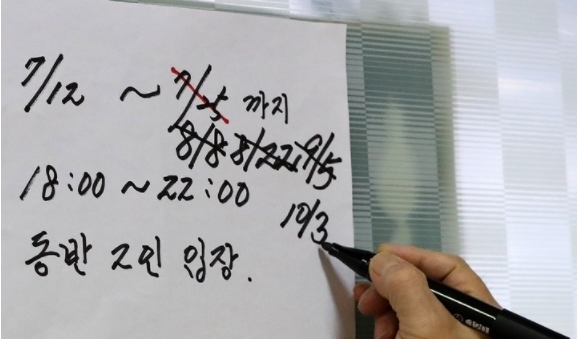 7/12 ~ 7/25 까지
8/8 8/22 9/5
18:00 ~ 22:00
10/3
동반 2인 입장.